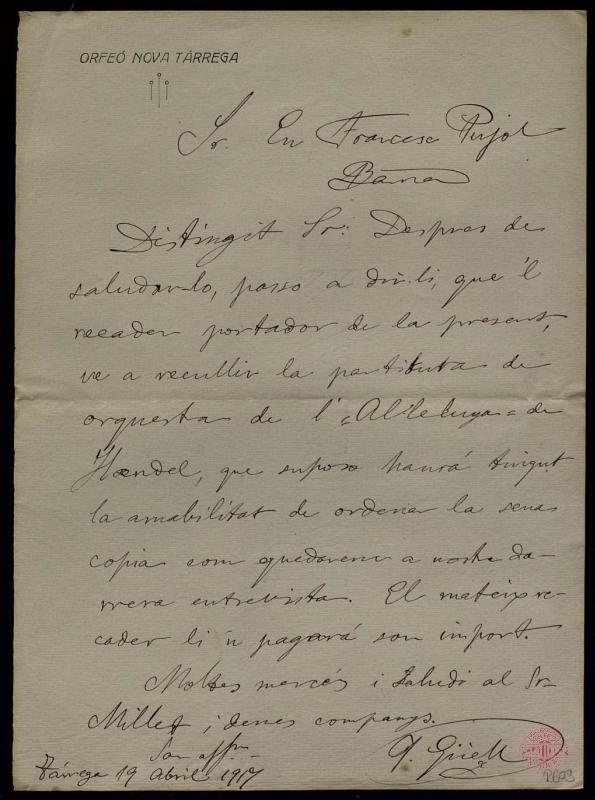 ORFEÓ NOVA TÁRREGA
Sr. En Francesc Pujol
Barna
Distingit Sr: Despres de
saludar-lo, passo a dir-li, que 'l
recader portador de la present,
ve a recullir la partitura de
orquesta de l' "Al·leluya" de
Haendel, que suposo haurá tingut
la amabilitat de ordenar la seua
copia com quedarem a nostra da-
rrera entrevista. El mateix re-
cader li 'n pagará son import.
Moltes mercés i saludi al Sr
Millet i demes companys.
Son affm
Tárrega 19 Abril 1917
G. Güell